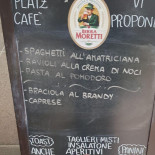 PLATZ VI
CAFÈ PROPONE
BIRRA
MORETTI
- SPAGHETTI ALL'AMATRICIANA
- RAVIOLI ALLA CREMA DI NOCI
- PASTA AL POMODORO
- BRACIOLA AL BRANDY
- CAPRESE
TOAST TAGLIERI MISTI
ANCHE INSALATONE PANINI
APERITIVI